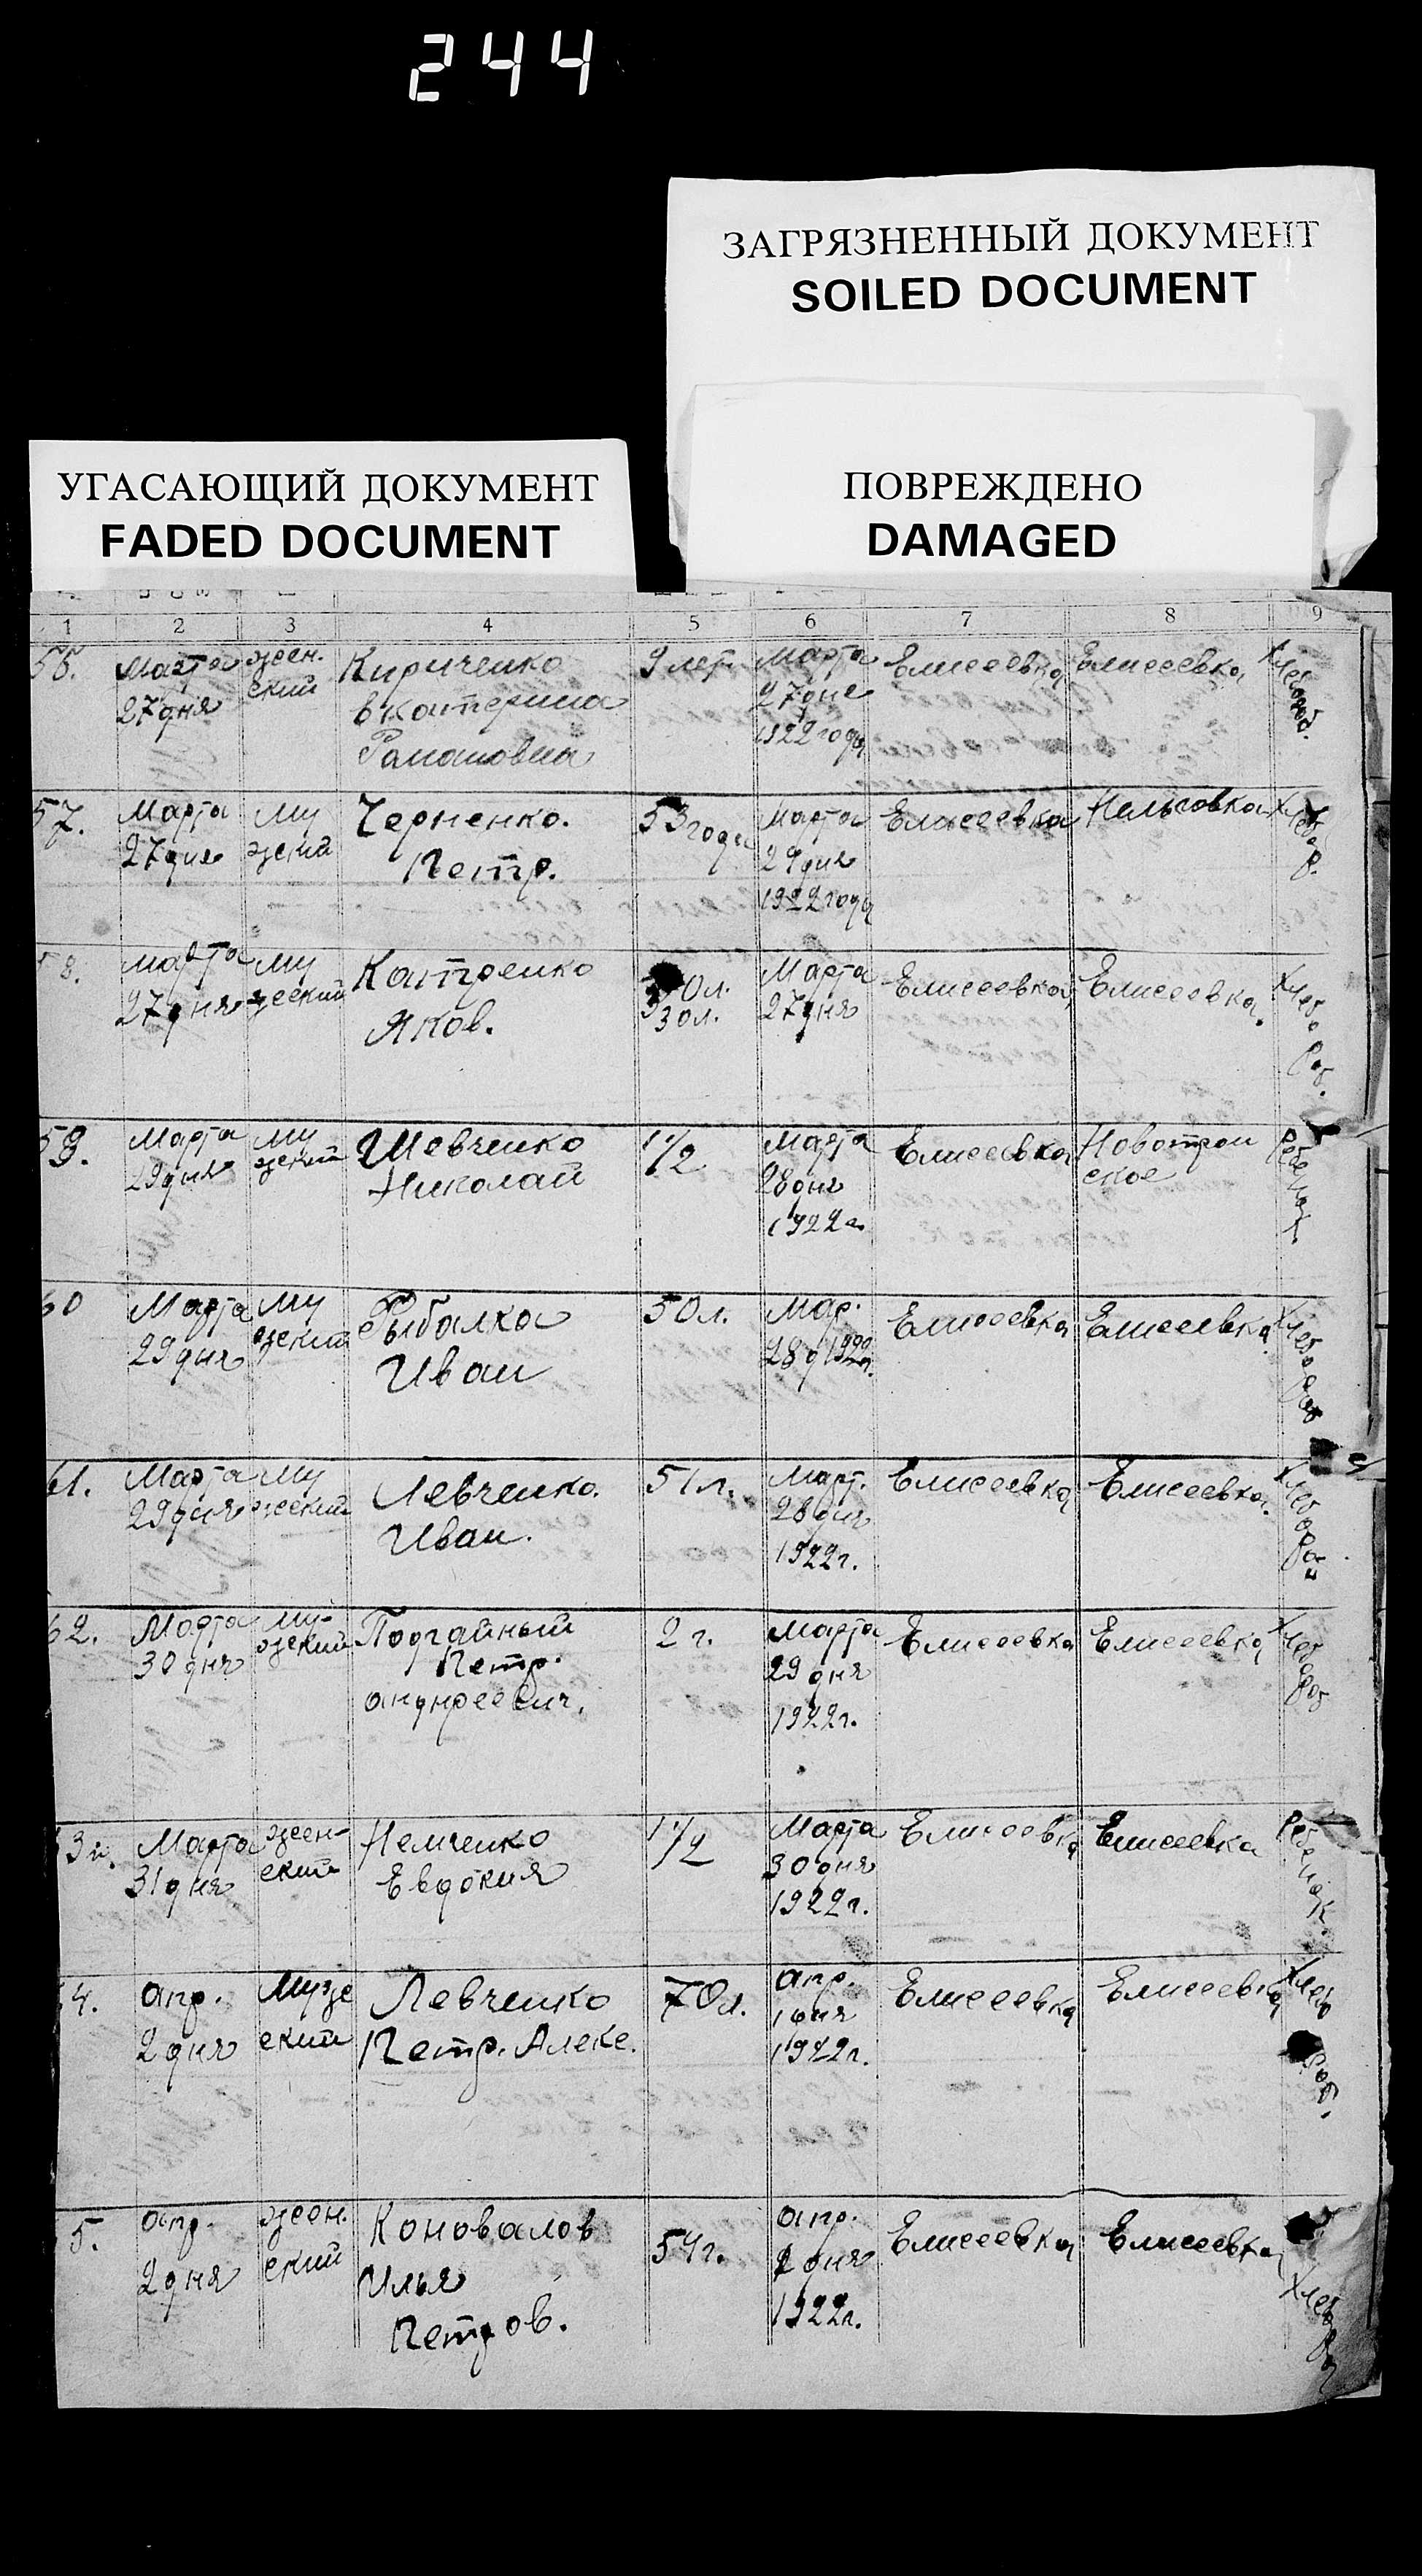 244
ЗАГРЯЗНЕННЫЙ ДОКУМЕНТ
SOILED DOCUMENT
УГАСАЮЩИЙ ДОКУМЕНТ
FADED DOCUMENT
ПОВРЕЖДЕНО
DAMAGED
1 2 3 4 5 6 7 8 9
56. Марта жен- Кириченко 9 лет Марта Елисеевка Елисеевка Хлебороб.
27 дня ский Екатерина 27 дня
Романовна 1922 года
57. Марта му Черненко. 53 года Марта Елисеевка Нельговка
27 дня жский Петр. 29 дня
1922 года
58. Марта му Катренко 30л. Марта Елисеевка Елисеевка. Хлебороб.
27 дня жеский Яков. 30л. 27 дня
59. Марта му Шевченко 1 1/2 Марта Елисеевка Новотрои Ребенок.
29 дня жский Николай 28 дня ское
1922 г.
60 Марта му Рыбалка 50 л. Мар. Елисеевка Елисеевка Хлебороб
29 дня жский Иван 28 д 1922г.
61. Марта му Левченко. 51 л. Март. Елисеевка Елисеевка. Хлебороб
29 дня жеский Иван. 28 дня
1922 г.
62. Марта му- Подгайный 2 г. Марта Елисеевка Елисеевка Хлебороб
30 дня жский Петр. 29 дня
андреевич. 1922г.
3 Марта жен- Немченко 1 1/2 Марта Елисеевка Елисеевка Ребенок.
31 дня ский Евдокия 30 дня
1922г.
4. апр. Муже Левченко 70л. апр. Елисеевка Елисеевка Хлебороб.
2 дня ский Петр. Алекс. 1 дня
1922г.
5. апр. жен. Коновалов 54г. апр. Елисеевка Елисеевка
2 дня ский Илья 2 дня
Петров. 1922г.